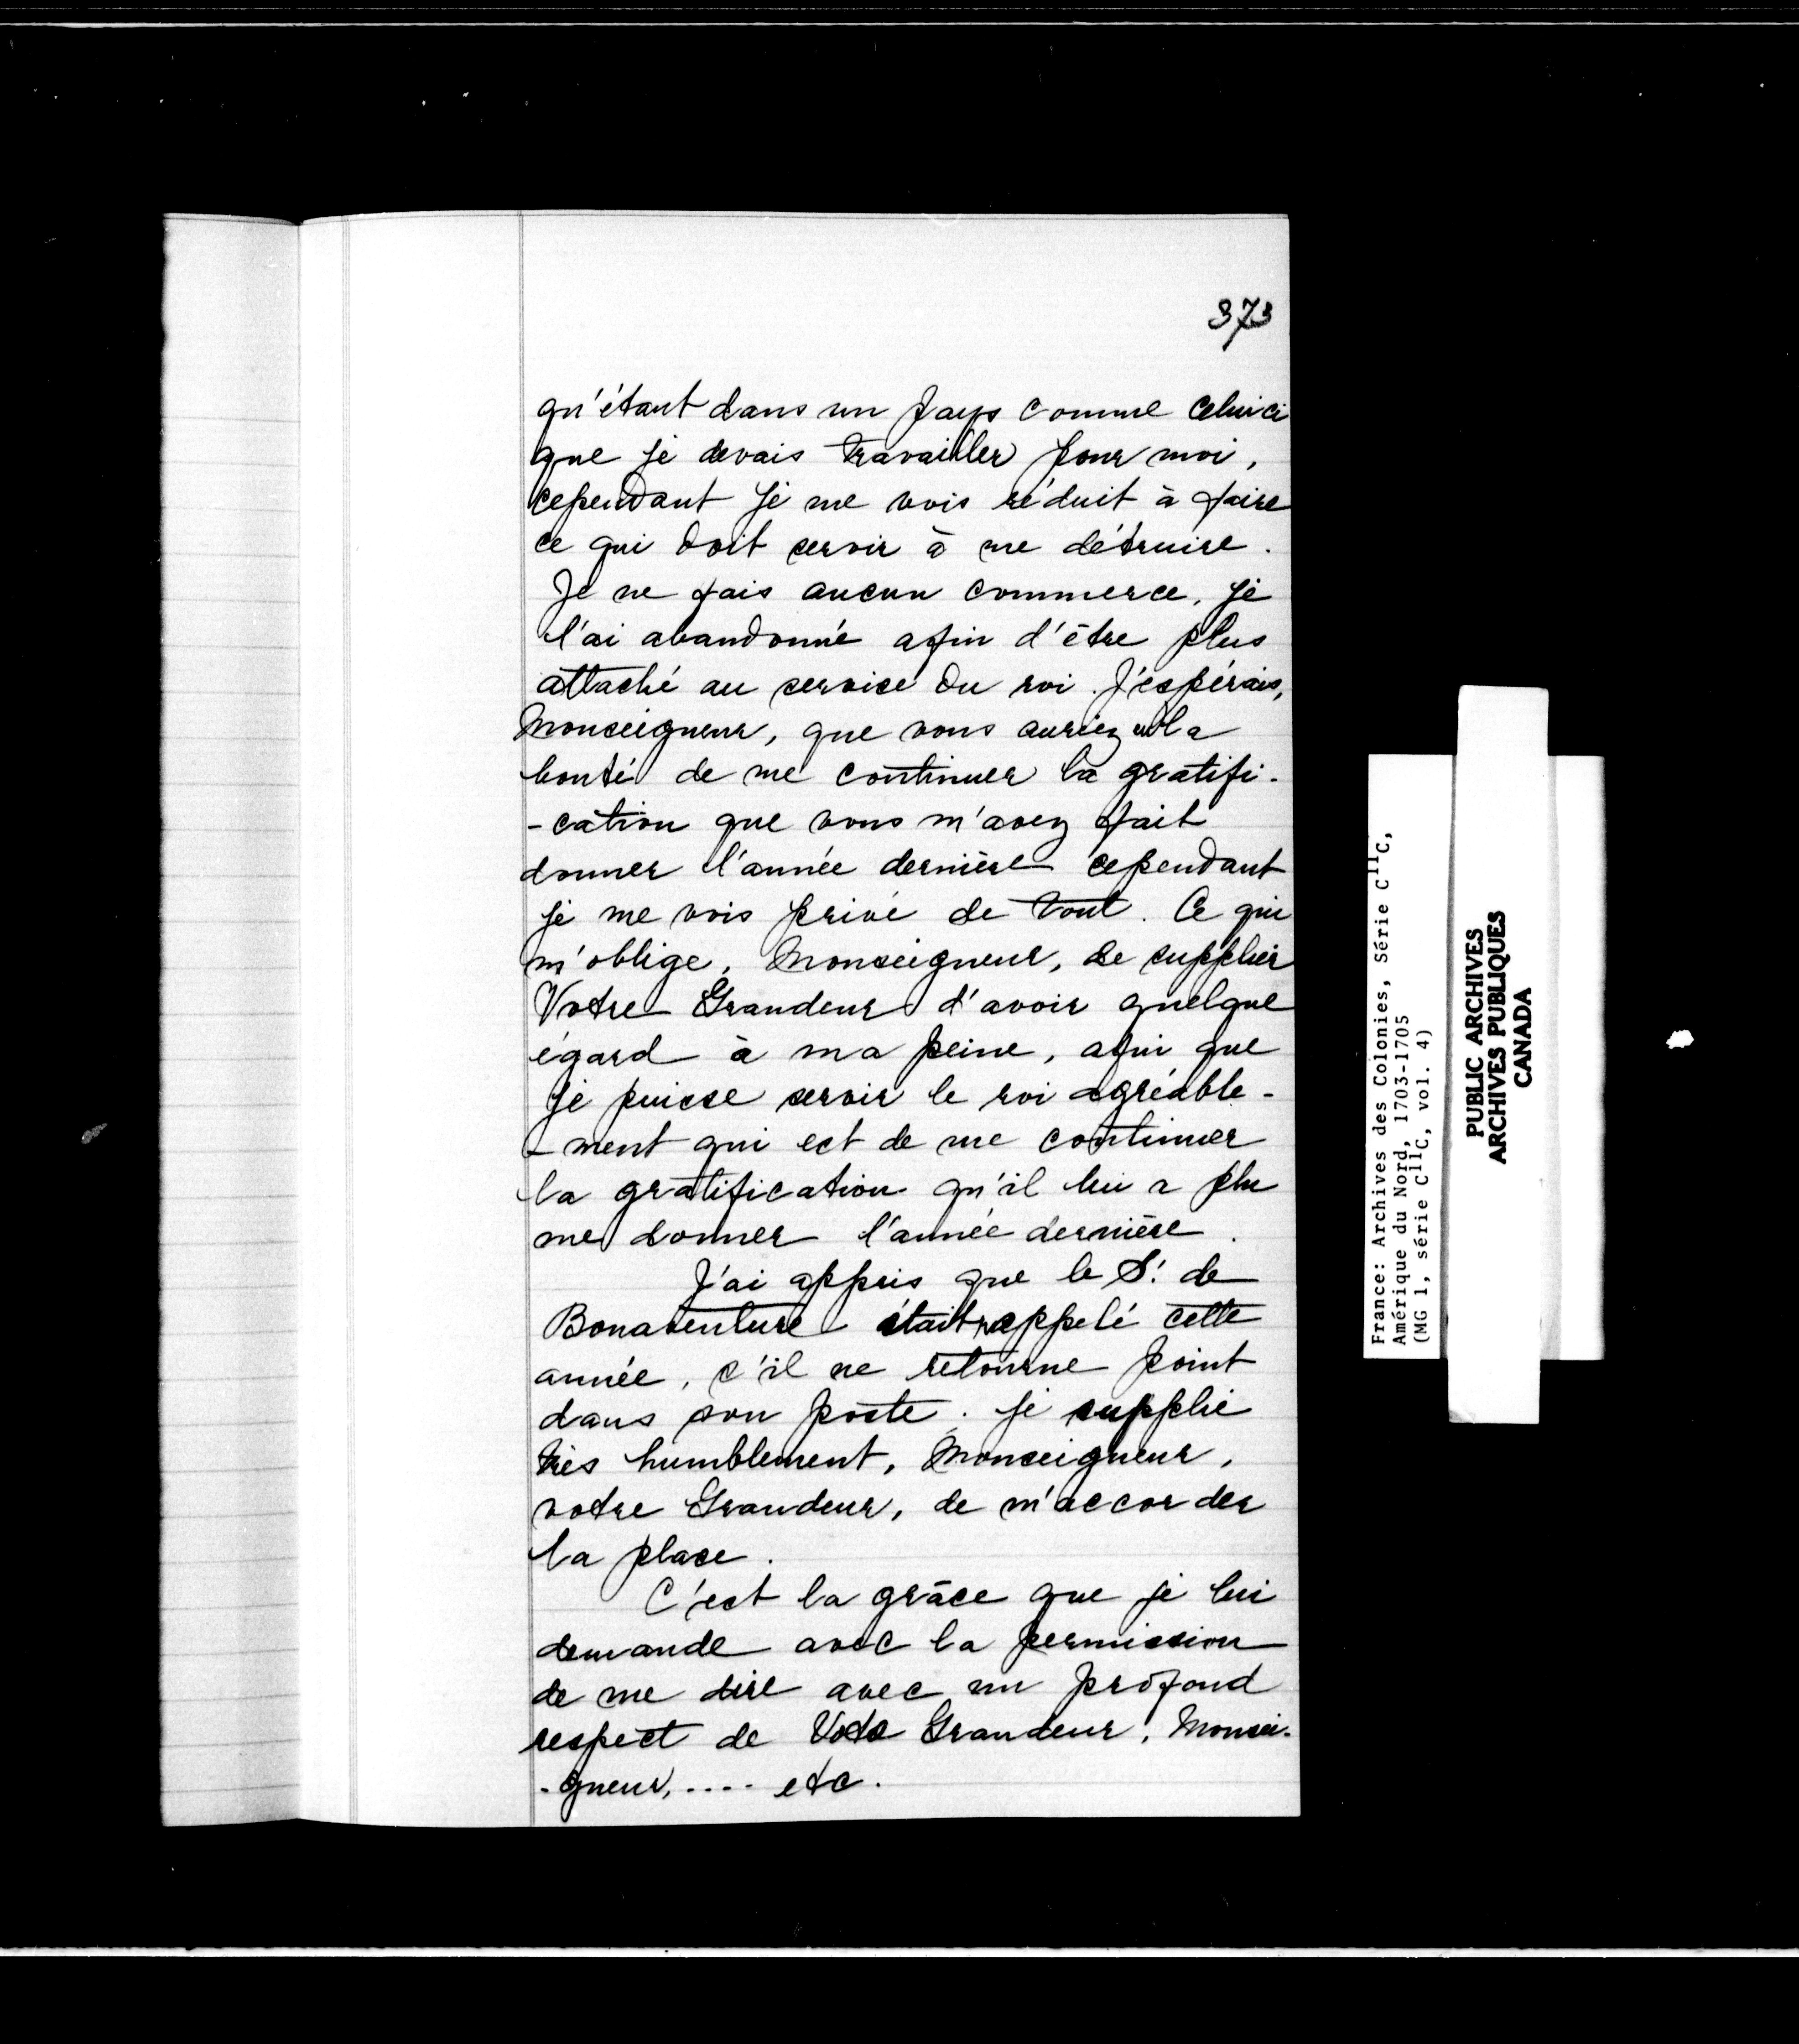 373
qu'étant dans un pays comme celui ci
que je devais travailler pour moi,
cependant je me vois réduit à faire
ce qui doit servir à me détruire.
Je ne fais aucun commerce, je
l'ai abandonné afin d'être plus
attaché au service du roi. J'espérais,
Monseigneur, que vous auriez eu la
bonté de me continuer la gratifi-
-cation que vous m'avez fait
donner l'année dernière cependant
je me vois privé de tout. Ce qui
m'oblige, Monseigneur, de supplier
Votre Grandeur d'avoir quelque
égard à ma peine, afin que
je puisse servir le roi agréable-
-ment qui est de me continuer
la gratification qu'il lui a plu
me donner l'année dernière.
J'ai appris que le Sr. de
Bonaventure était rappelé cette
année, s'il ne retourne point
dans son poste. je supplie
très humblement, Monseigneur,
votre Grandeur, de m'accorder
la place.
C'est la grâce que je lui
demande avec la permission
de me dire avec un profond
respect de Votre Grandeur, Monsei-
-gneur, .... etc.
France: Archives des Colonies, Série C11C,
Amérique du Nord, 1703-1705
(MG 1, série C11C, vol. 4)
PUBLIC ARCHIVES
ARCHIVES PUBLIQUES
CANADA